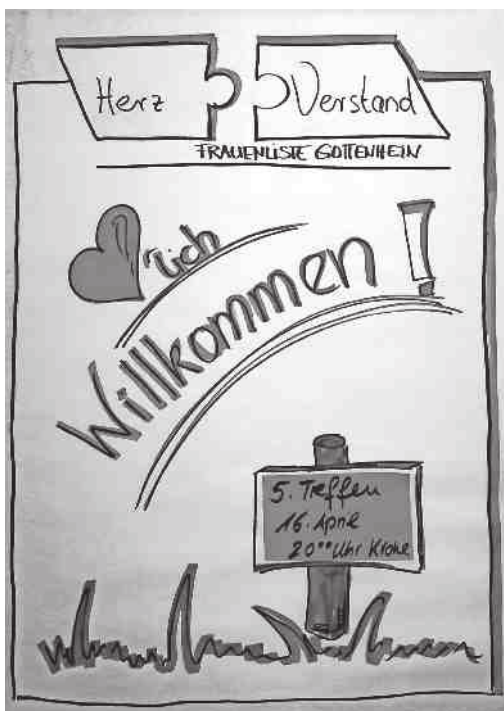 Herz Verstand
FRAUENLISTE GOTTENHEIN
'lich
Willkommen!
5. Treffen
16. April
20°° Uhr Krone